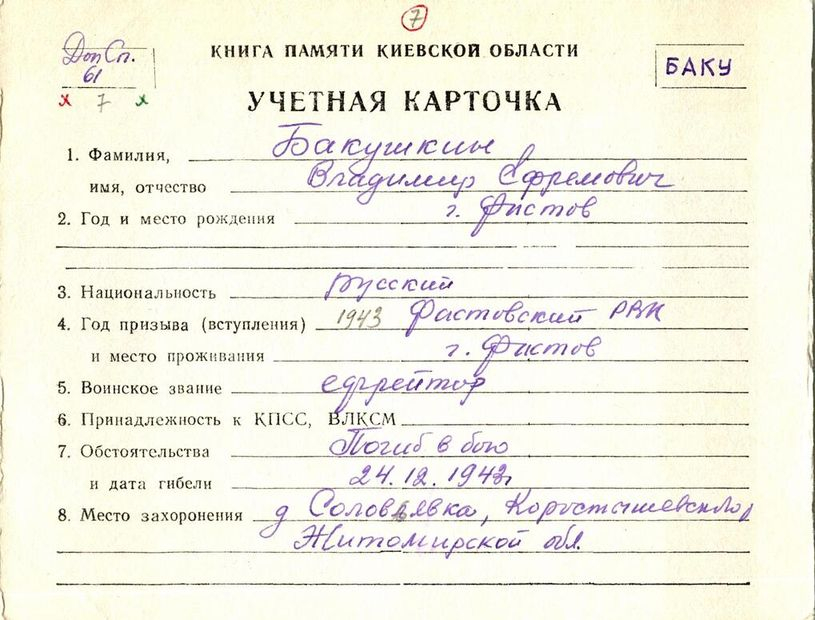 7
Доп Сп.
61
х 7 х
КНИГА ПАМЯТИ КИЕВСКОЙ ОБЛАСТИ
БАКУ
УЧЕТНАЯ КАРТОЧКА
1. Фамилия, Бакушкин
имя, отчество Владимир Ефремович
2. Год и место рождения г. Фастов
3. Национальность русский
4. Год призыва (вступления) 1943 Фастовский РВК
и место проживания г. Фастов
5. Воинское звание ефрейтор
6. Принадлежность к КПСС, ВЛКСМ
7. Обстоятельства Погиб в бою
и дата гибели 24.12.1943г
8. Место захоронения д Соловьявка, Коростышевского р
Житомирской обл.